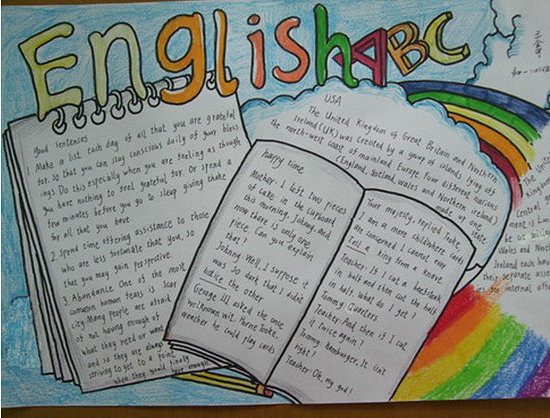 English ABC
Good sentences
1 Make a list each day of all that you are grateful
for. So that you can stay conscious daily of your bless
ings. Do this especially when you are feeling as though
you have nothing to feel grateful for. Or spend a
few minutes before you go to sleep giving thanks
for all that you have.
2 Spend time offering assistance to those
who are less fortunate that you, so
that you may gain perspective.
3 Abandance One of the most
common human fears is scar
city. Many people are afraid
of not having enough of
what they need or want
and so they are always
striving to get to a point
when they would finally
have enough
USA
The United Kingdom of Great Britain and Northern
Ireland (UK) was created by a group of islands lying off
the north-west coast of mainland Europe. Four different nations
(England, Scotland, Wales and Northern Ireland)
made up one
state
happy time
Mother: I left two pieces
of cake in the cupboard
this morning, Johnny, and
now there is only one
piece. Can you explain
that?
Johnny: Well, I suppose it
was so dark that I didn't
notice the other
George III asked the once
well-known wit, Horne Tooke,
weather he could play cards
Your majesty, replied Tooke,
I am a mere child where cards
are concerned I cannot even
tell a king from a knave.
Teacher: If I cut a beefsteak
in half and then cut the half
in half, what do I get?
Tommy: Quarters.
Teacher: And then if I cut
it twice again?
Tommy: Hamburger. It isn't
right?
Teacher: Oh, my god!
The United
Central
ment of
be
Wales and No
Ireland each have
their separate
internal